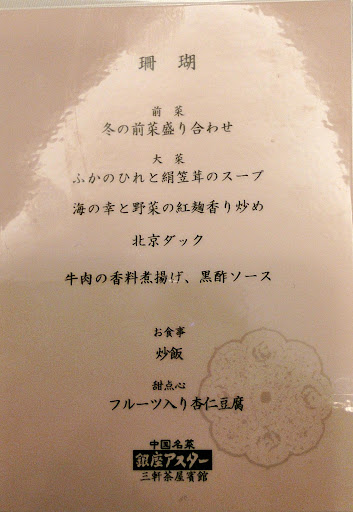 珊瑚
前菜
冬の前菜盛り合わせ
大菜
ふかのひれと絹笠茸のスープ
海の幸と野菜の紅麹香り炒め
北京ダック
牛肉の香料煮揚げ、黒酢ソース
お食事
炒飯
甜点心
フルーツ入り杏仁豆腐
中国名菜
銀座アスター
三軒茶屋賓館